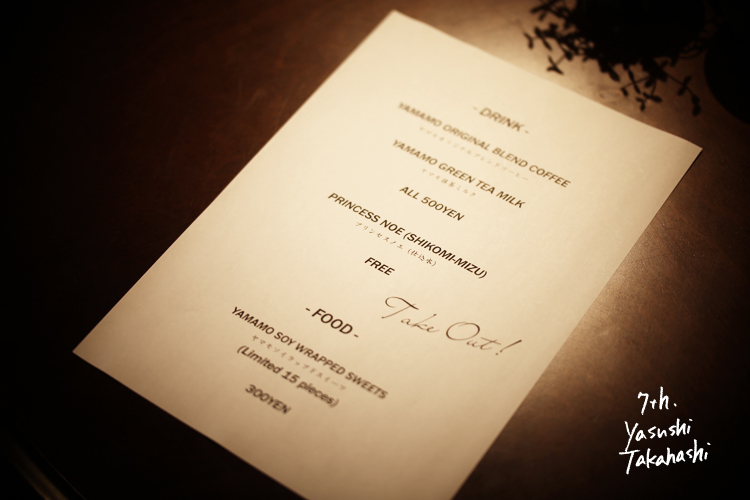 - DRINK -
YAMAMO ORIGINAL BLEND COFFEE
YAMAMO GREEN TEA MILK
ALL 500YEN
PRINCESS NOE (SHIKOMI-MIZU)
プリンセスノエ (仕込水)
FREE
Take Out!
- FOOD -
YAMAMO SOY WRAPPED SWEETS
(Limited 15 pieces)
300YEN
7th.
Yasushi
Takahashi